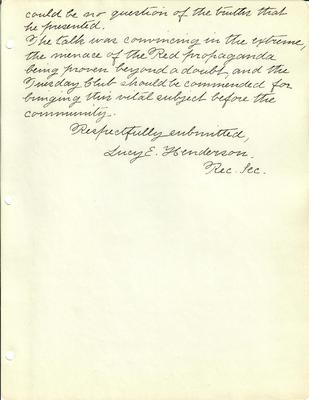 could be no question of the truths that
he presented.
The talk was convincing in the extreme,
the menace of the Red propaganda
being proven beyond a doubt, and the
Tuesday Club should be commended for
bringing this vital subject before the
community.
Respectfully submitted,
Lucy E. Henderson.
Rec. Sec.